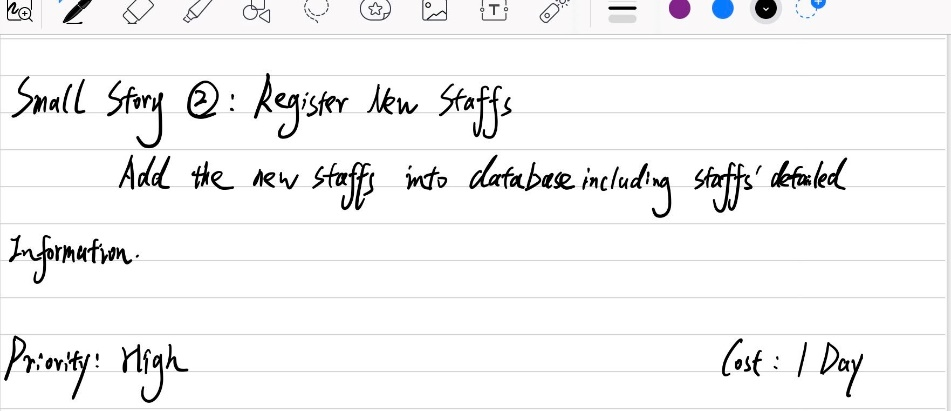 Small Story ②: Register New Staffs
Add the new staffs into database including staffs' detailed
Information.
Priority: High
Cost: 1 Day